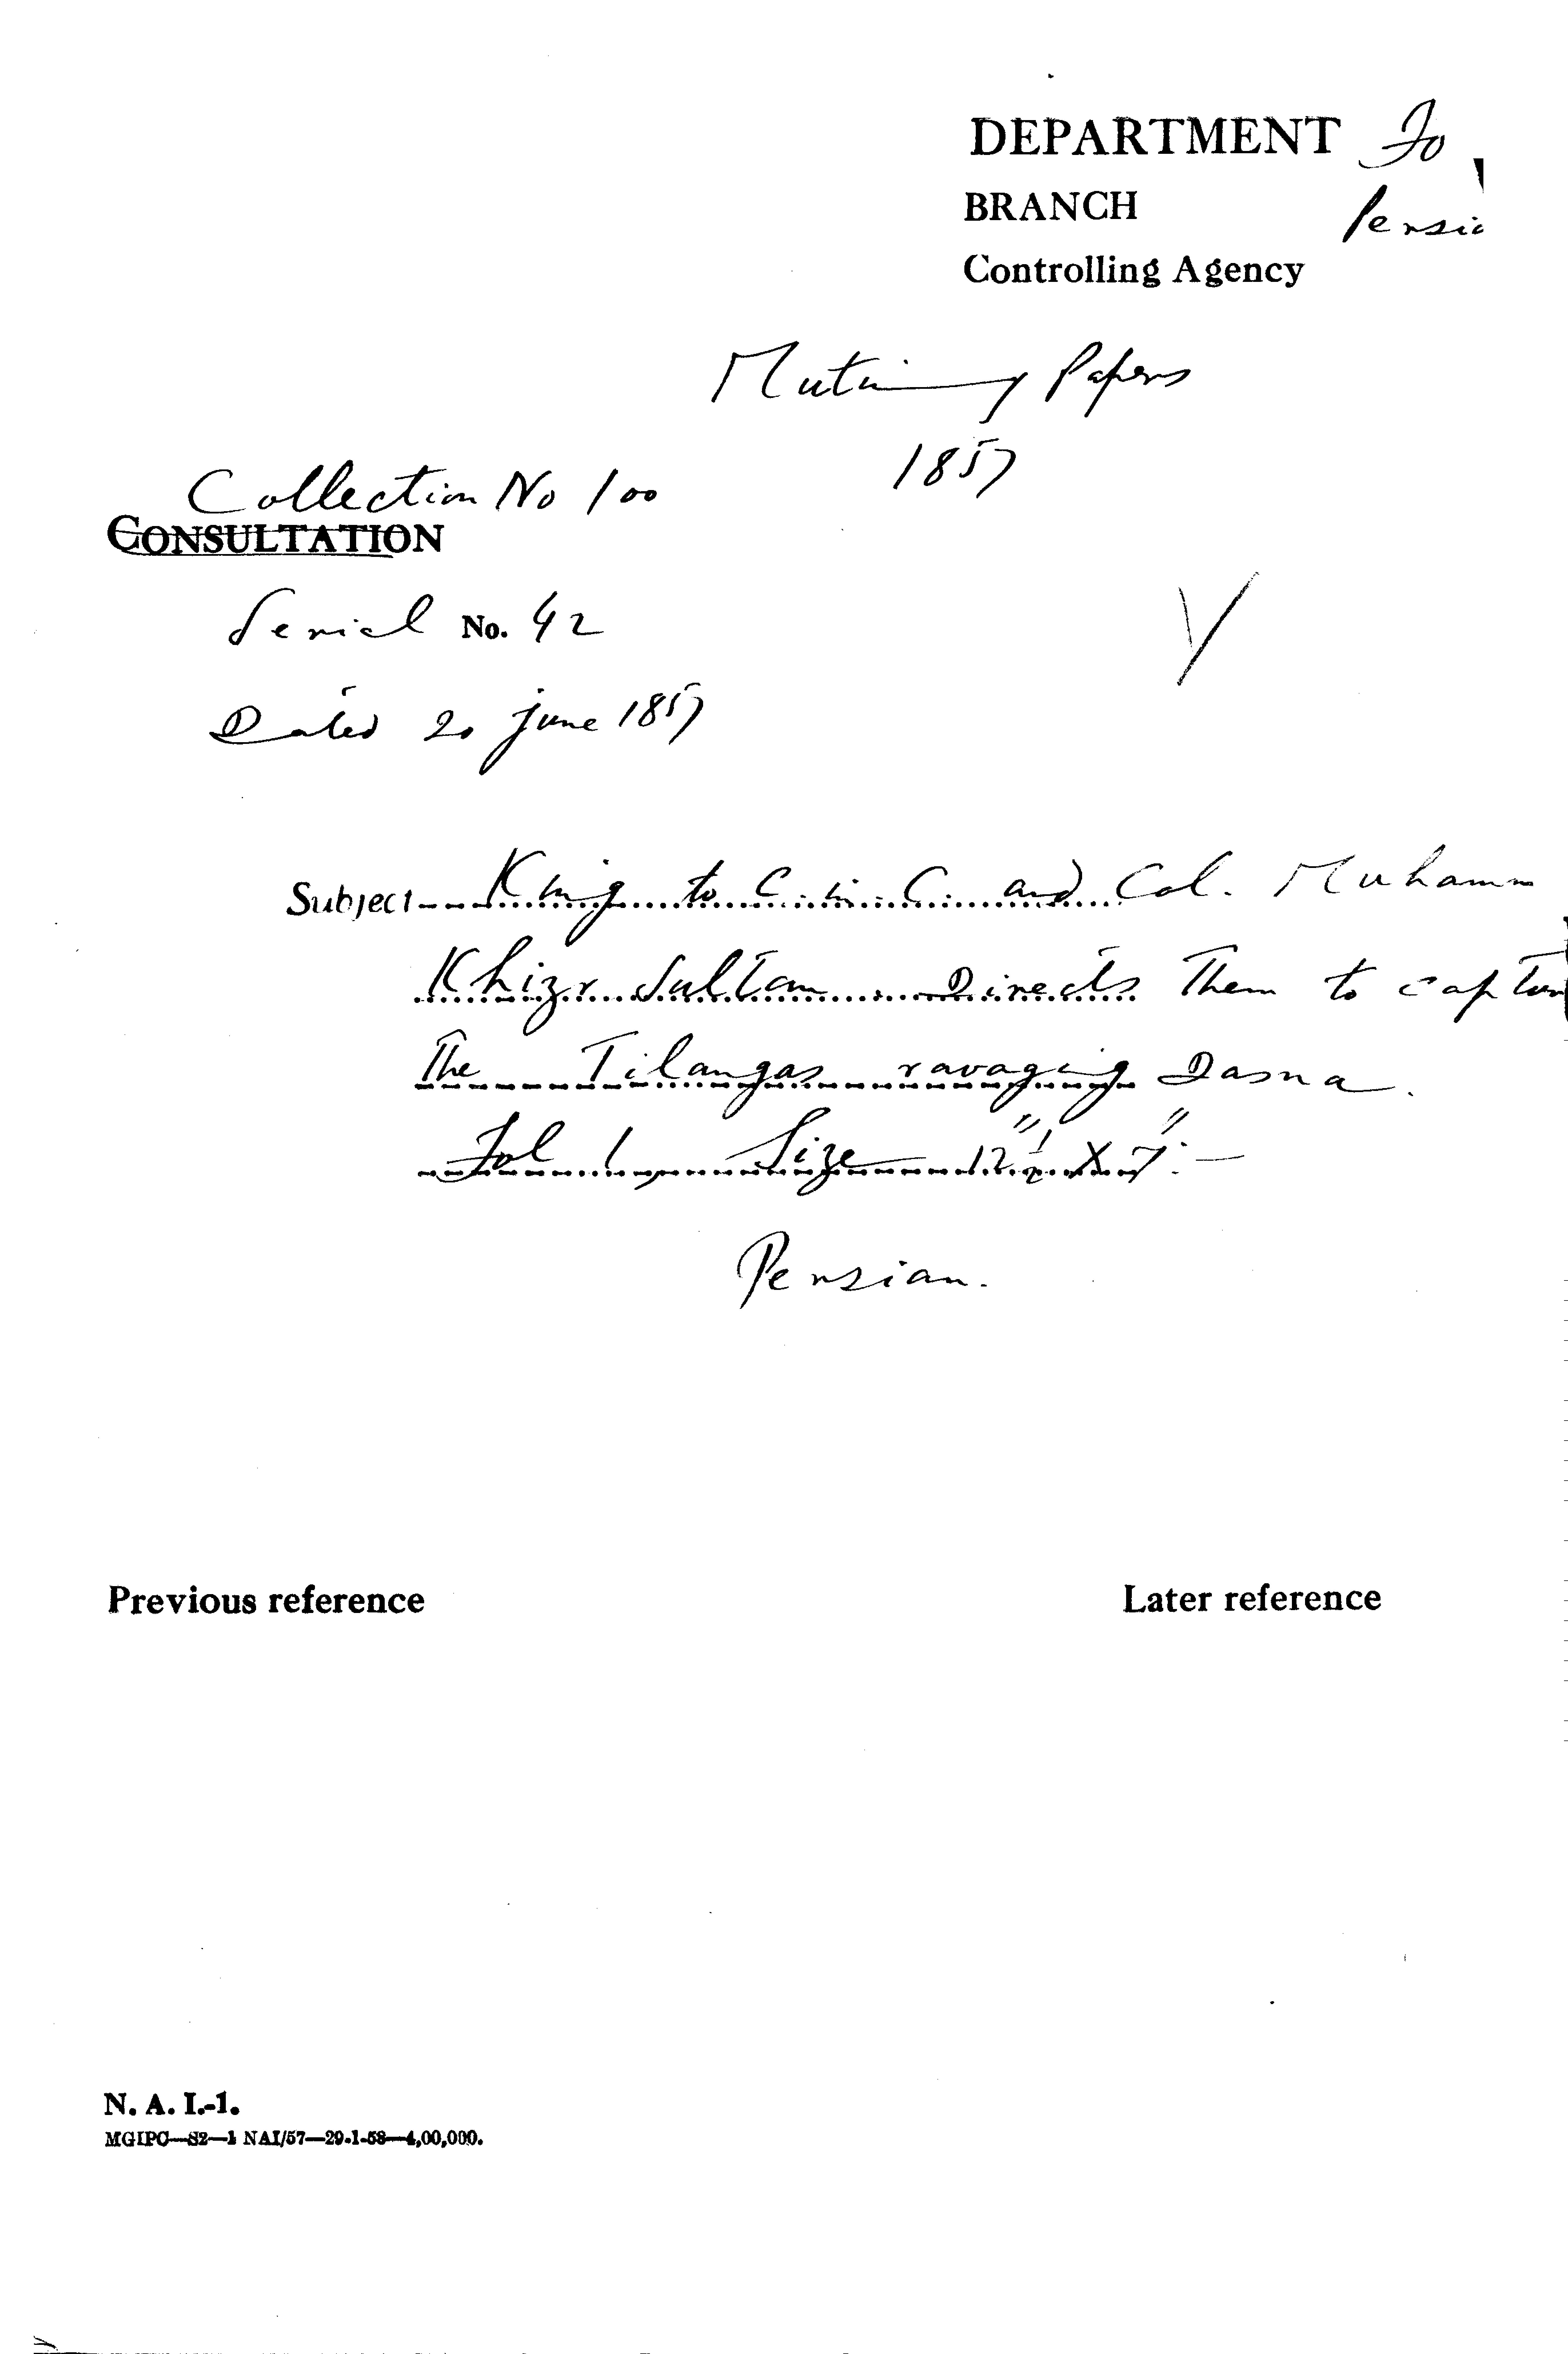 DEPARTMENT Fo
BRANCH Persia
Controlling Agency
Mutiny Papers
1857
Collection No 100
CONSULTATION
Serial No. 42
Dated 20 June 1857
Subject King to C. in C. and Col. Muhamm
Khizr Sultan. Directs Them to captur
The Tilangas ravaging Dasna.
Fol 1, Size 12½" X 7":—
Persian.
Previous reference Later reference
N. A. I.-1.
MGIPC—S2—1 NAI/57—29-1-58—4,00,000.